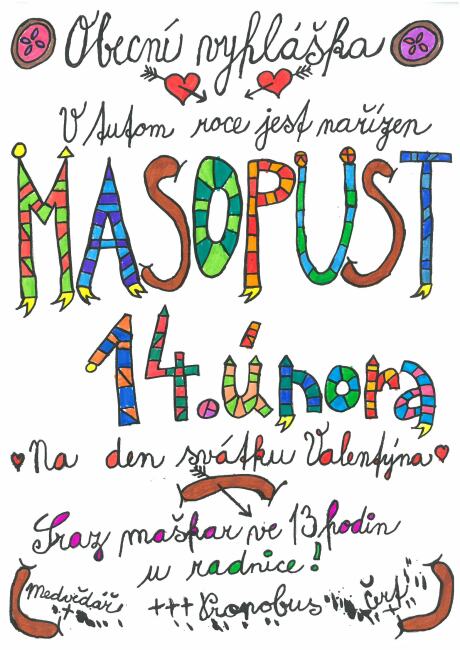 Obecní vyhláška
V tutom roce jest nařízen
MASOPUST
14. února
Na den svátku Valentýna
Sraz maškar ve 13 hodin
u radnice!
Medvědář +++ Kronobus Čert